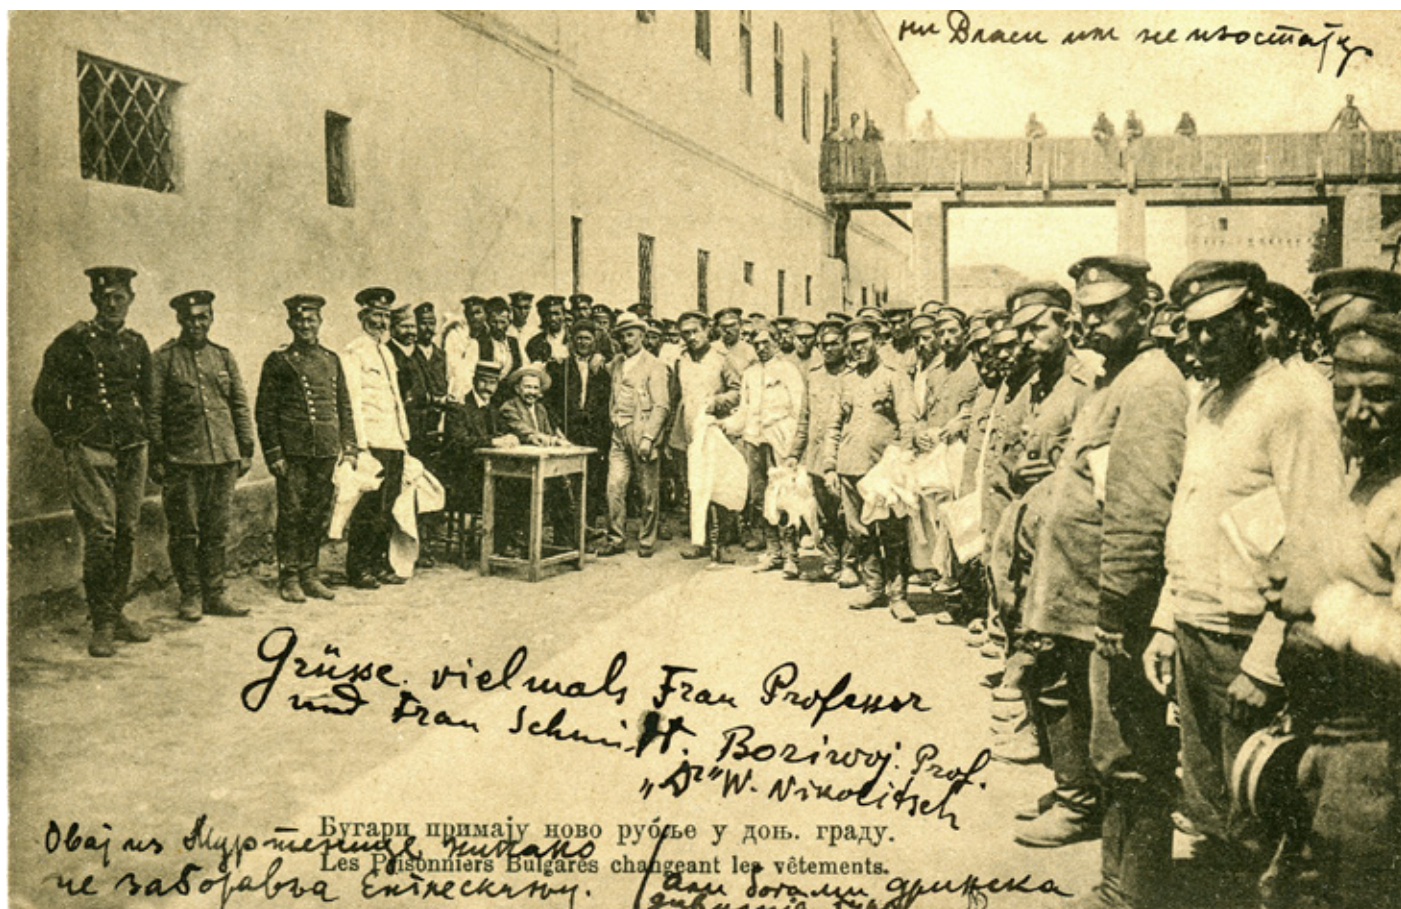 ни Власи им не изостају
Grüsse vielmals Frau Professor
und Frau Schmidt. Boriwoj. Prof.
„Dr” W. Nikolitsch
Бугари примају ново рубље у доњ. граду.
Les Prisonniers Bulgares changeant les vêtements.
Овај из никако
не заборавља
дринска